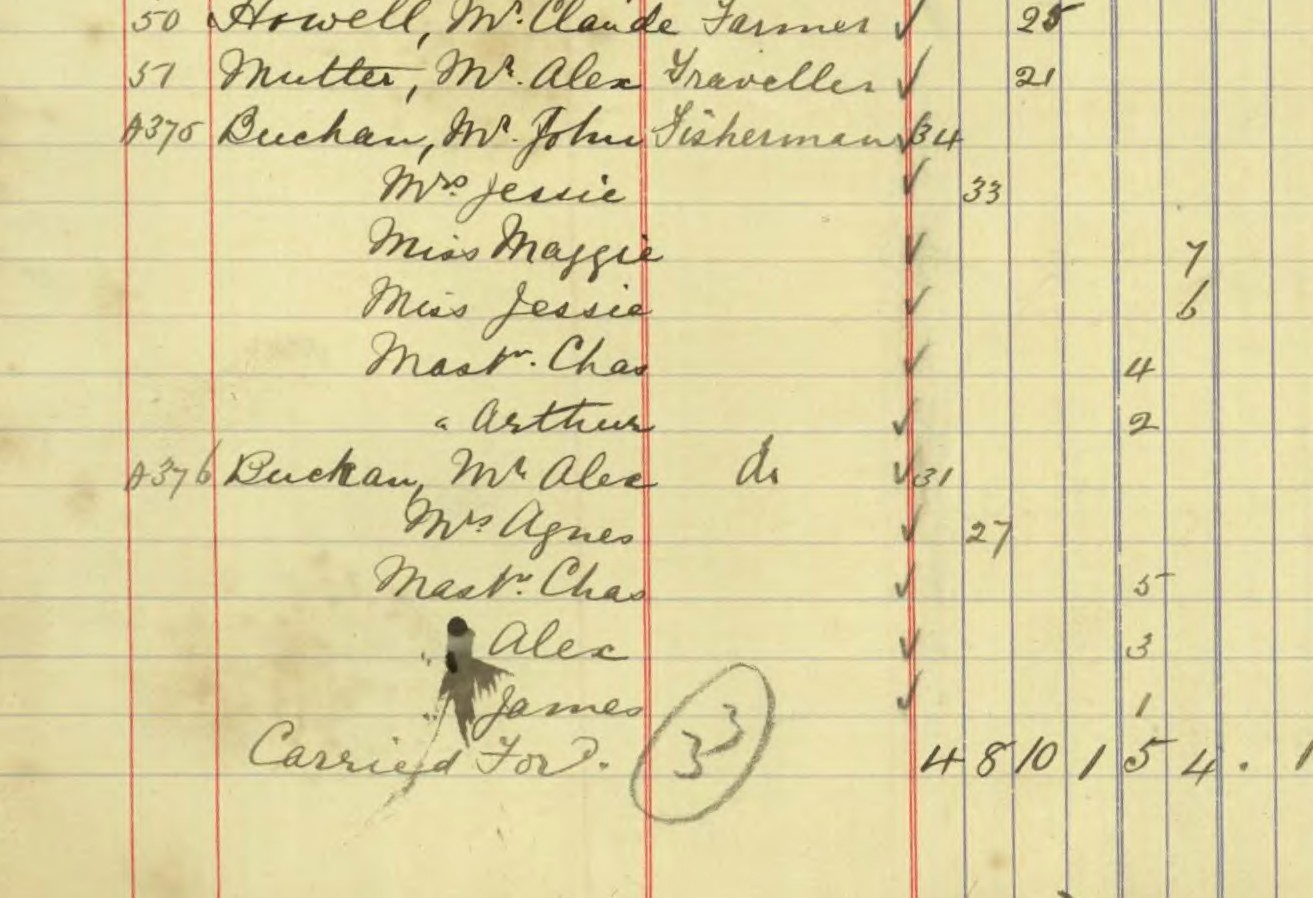 50 Howell, Mr. Claude Farmer ✓ 25
51 Mutter, Mr. Alex Traveller ✓ 21
A375 Buchan, Mr. John Fisherman ✓ 34
Mrs Jessie ✓ 33
Miss Maggie ✓ 7
Miss Jessie ✓ 6
Mastr. Chas ✓ 4
" Arthur ✓ 2
A376 Buckan, Mr Alex do ✓ 31
Mrs Agnes ✓ 27
Mastr. Chas ✓ 5
" Alex ✓ 3
" James ✓ 1
Carried Ford. 33 4 8 10 1 5 4 . 1